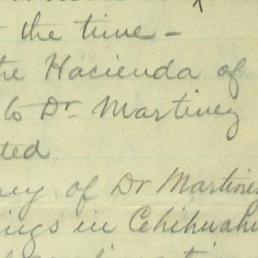 the time –
the Hacienda of
to Dr Martinez
ted
ney of Dr Martinez
ings in Cehihuahu